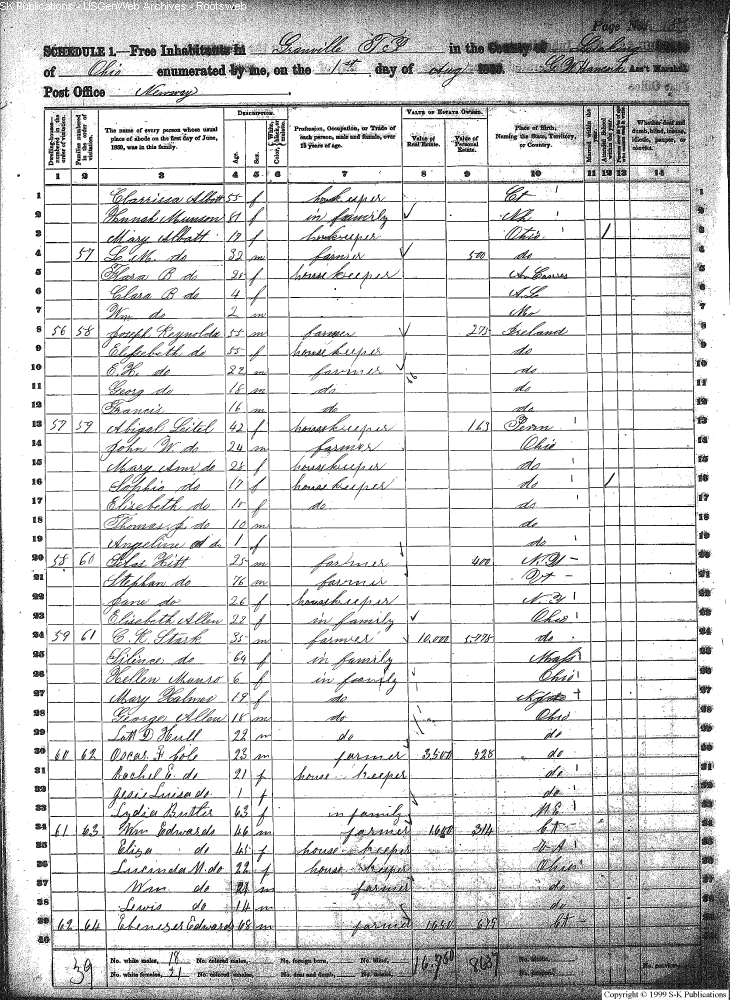 SK Publications - USGenWeb Archives - Rootsweb
Page No.
SCHEDULE 1.—Free Inhabitants in Granville TP in the County of Licking State
of Ohio enumerated by me, on the 1st day of Aug 1860. Ass't Marshal
Post Office Newway
Dwelling-houses—numbered in the order of visitation.
Families numbered in the order of visitation.
The name of every person whose usual place of abode on the first day of June, 1860, was in this family.
DESCRIPTION.
Age. Sex. Color, White, black, or mulatto.
Profession, Occupation, or Trade of each person, male and female, over 15 years of age.
VALUE OF ESTATE OWNED.
Value of Real Estate. Value of Personal Estate.
Place of Birth, Naming the State, Territory, or Country.
Married within the year.
Whether deaf and dumb, blind, insane, idiotic, pauper, or convict.
1 2 3 4 5 6 7 8 9 10 11 12 13 14
1 Clarrissa Albott 55 f Ct 1
2 Hannah Munson 81 f in family 2
3 Mary Albatt 17 f Ohio / 3
4 57 L. M. do 32 m farmer 500 do 4
5 Flara B do 25 f housekeeper 5
6 Clara B do 4 f 6
7 Wm do 2 m Mo 7
8 56 58 Joseph Reynolds 55 m farmer 275 Ireland 8
9 Elissebeth do 55 f housekeeper do 9
10 E. H. do 22 m farmer do 10
11 Georg do 18 m do do 11
12 Francis 16 m do do 12
13 57 59 Abigal Leitel 42 f housekeeper 163 Penn 13
14 John W. do 24 m farmer Ohio 14
15 Mary Ann do 23 f housekeeper do 15
16 Sophia do 17 f housekeeper do / 16
17 Elizebeth do 15 f do do 17
18 Thomas J do 10 m do 18
19 Angeline A do 1 f do 19
20 58 60 Silas Hitt 25 m farmer 400 N.Y 20
21 Stephan do 76 m farmer Vt
22 Jane do 26 f housekeeper N.Y
23 Elisabeth Allen 22 f in family Ohio
24 59 61 C. W. Stark 35 m farmer 10,000 5775 do
25 Silince do 69 f in family Mass
26 Hellen Munro 6 f in family Ohio
27 Mary Halmer 19 f do
28 George Allen 18 m do Ohio
29 D Hull 22 m do do
30 60 62 Oscar F Cole 23 m farmer 3500 528 do
31 Rachel E. do 21 f house keeper do
32 Jesie Luisa do 1 f do
33 Lydia Butler 63 f in family M.E
34 61 63 Wm Edwards 46 m farmer 1600 314 Ct
35 Eliza do 45 f house keeper
36 Lucinda M. do 22 f house keeper Ohio
37 Wm do 21 m farmer do
38 Lewis do 14 m do
39 62 64 Ebenezer Edwards 68 m farmer 1650 675 Ct
40
39 No. white males, 18 No. colored males, No. foreign born, No. blind, 16,750 8637 No. idiotic, No. paupers,
No. white females, 21 No. colored females, No. deaf and dumb, No. insane, No. convicts,
Copyright © 1999 S-K Publications